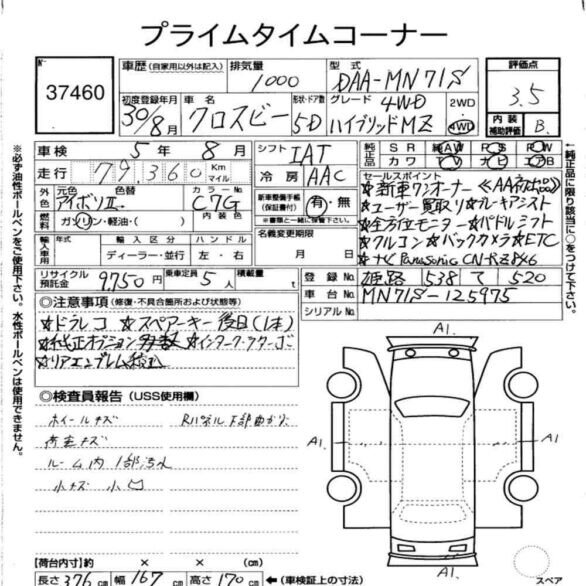 プライムタイムコーナー
37460
車歴 (自家用以外は記入)
排気量 1000
型式 DAA-MN71S
評価点 3.5
初度登録年月 30/8月
車名 クロスビー
形状・ドア数 5D
グレード 4WD ハイブリッドMZ
2WD・4WD
内装補助評価 B
車検 5年 8月
シフト IAT
純正品 SR AW PS PW
カワ ナビ エアB
走行 79,360 Km マイル
冷房 AAC
セールスポイント
☆新車ワンオーナー
☆ユーザー買取り ☆ブレーキアシスト
☆全方位モニター ☆パドルシフト
☆クルコン ☆バックカメラ ☆ETC
☆ナビ Panasonic
外装 元色 アイボリⅡ 色替
カラーNo. C7G
燃料 ガソリン・軽油・( )
内装色
新車整備手帳(保証書付) 有・無
※書類と一緒に保管等
名義変更期限 月 日
輸入車用 年式 輸入区分 ハンドル
ディーラー・並行 左・右
リサイクル預託金 9750円
乗車定員 5人
積載量 t
登録No. 姫路 538 て 520
車台No. MN71S-125975
シリアルNo.
◎注意事項 (修復・不具合箇所および状態等)
☆ドラレコ ☆スペアーキー後日(1本)
☆純正オプション多数 ☆インタークーラーゴ
☆リアエンブレム
◎検査員報告 (USS使用欄)
ホイールキズ Rパネル下部曲がり
荷室キズ
ルーム内1部汚れ
小キズ 小凹
A1.
A1.
A1.
A1.
【荷台内寸】約 × × (cm)
長さ 376 cm 幅 167 cm 高さ 170 cm ←(車検証上の寸法)
スペア
※必ず油性ボールペンをご使用下さい。水性ボールペンは使用できません。
↑純正品に限り該当に○をつけて下さい。